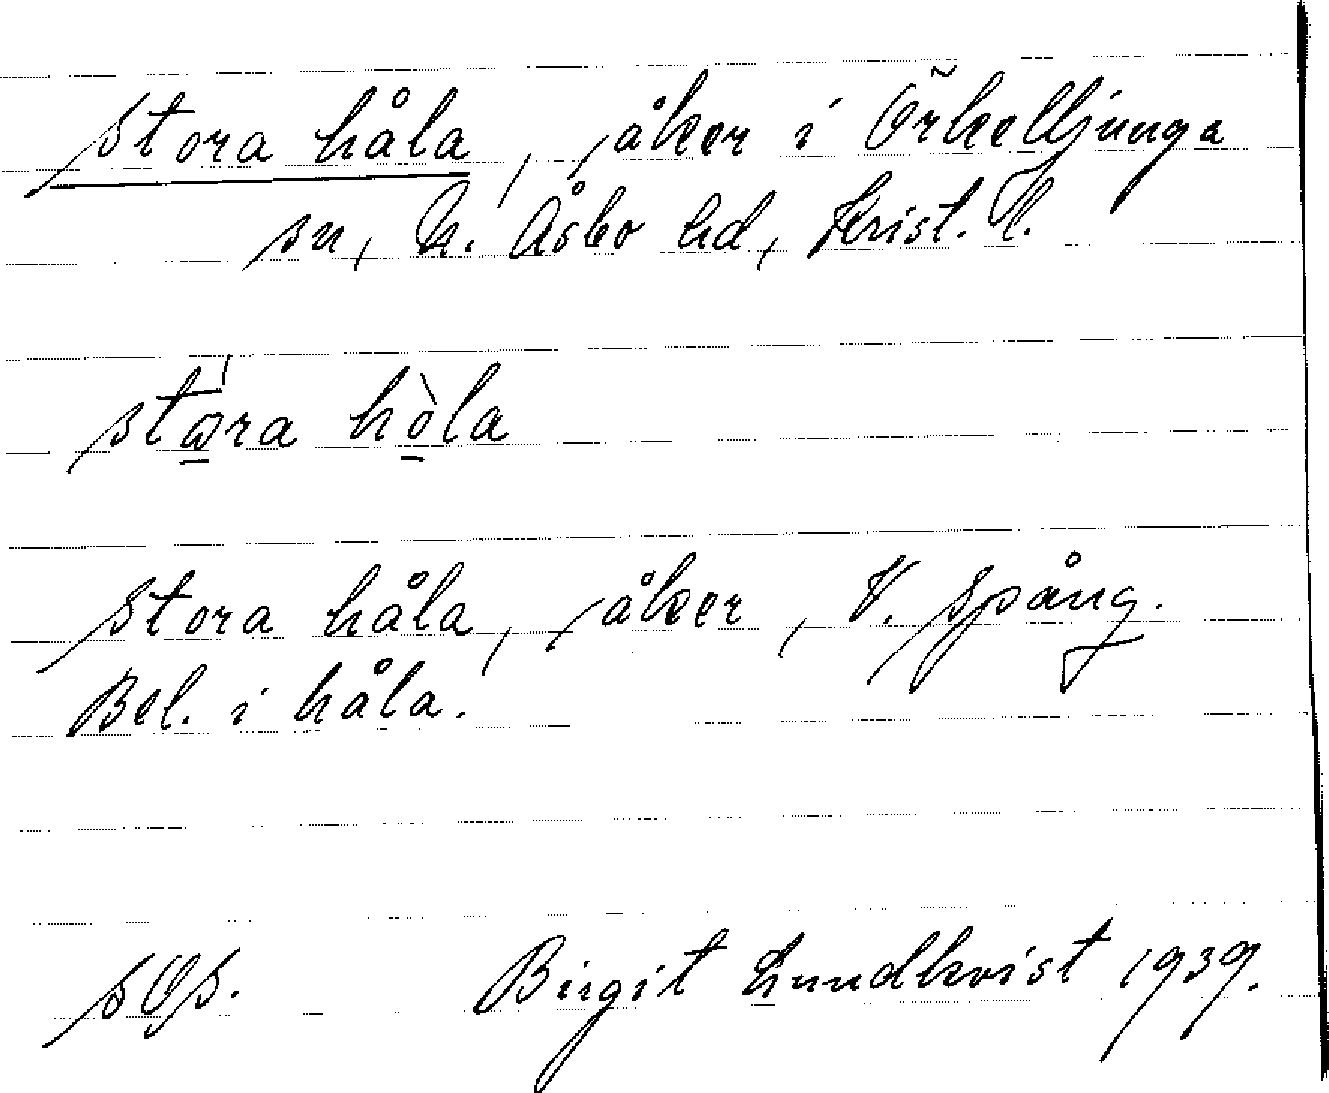 Stora håla, åker i Örkelljunga
sn, N. Åsbo hd, Krist. l.
stω̲ra hò̲la
Stora håla, åker, V. Spång.
Bel. i håla.
SOS. Birgit Lundkvist 1939.